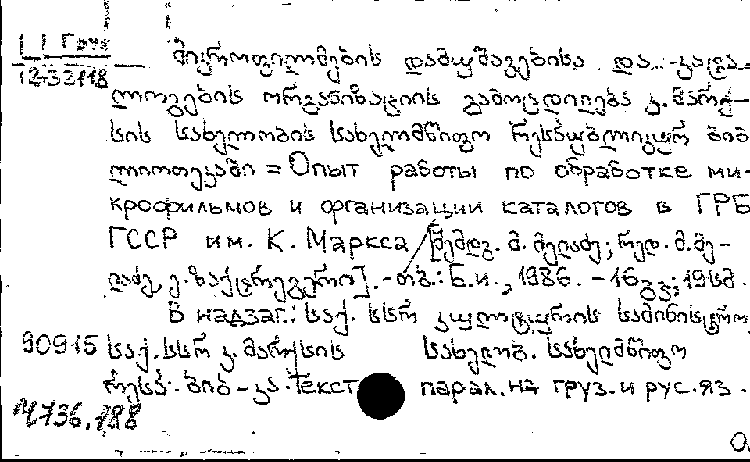 II Груз
12-32118
მიკროფილმების დამუშავებისა და კატა-
ლოგების ორგანიზაციის გამოცდილება კ. მარქ-
სის სახელობის სახელმწიფო რესპუბლიკურ ბიბ
ლიოთეკაში = Опыт работы по обработке ми-
крофильмов и организации каталогов в ГРБ
ГССР им. К. Маркса [შემდგ. მ. მელაძე; რედ. მ. მე-
ლაძე, ]. - თბ.: Б.и., 1986. - 16 გვ.; 19 სმ.
В надзаг.: საქ. სსრ კულტურის სამინისტრო,
90915 საქ. სსრ კ. მარქსის სახელობ. სახელმწიფო
რესპ. ბიბ-კა. Текст парал. на груз. и рус. яз.
4736.788